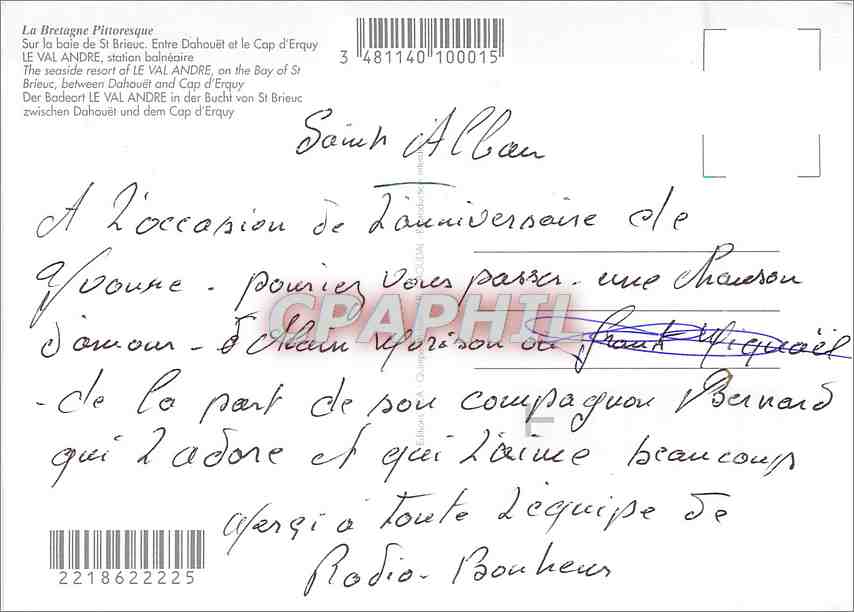 La Bretagne Pittoresque
Sur la baie de St Brieuc. Entre Dahouët et le Cap d'Erquy
LE VAL ANDRE, station balnéaire
The seaside resort of LE VAL ANDRE, on the Bay of St
Brieuc, between Dahouët and Cap d'Erquy
Der Badeort LE VAL ANDRE in der Bucht von St Brieuc
zwischen Dahouët und dem Cap d'Erquy
3 481140 100015
Saint Alban
A L'occasion de L'anniversaire de
Yvonne - pouriez vous passer - une chanson
d'amour - d'Alain Morison ou Frank Miquaël
- de la part de son compagnon Bernard
qui L'adore et qui L'aime beaucoup
Merçi à toute L'équipe de
Radio - Bonheur
CPAPHIL
2218622225